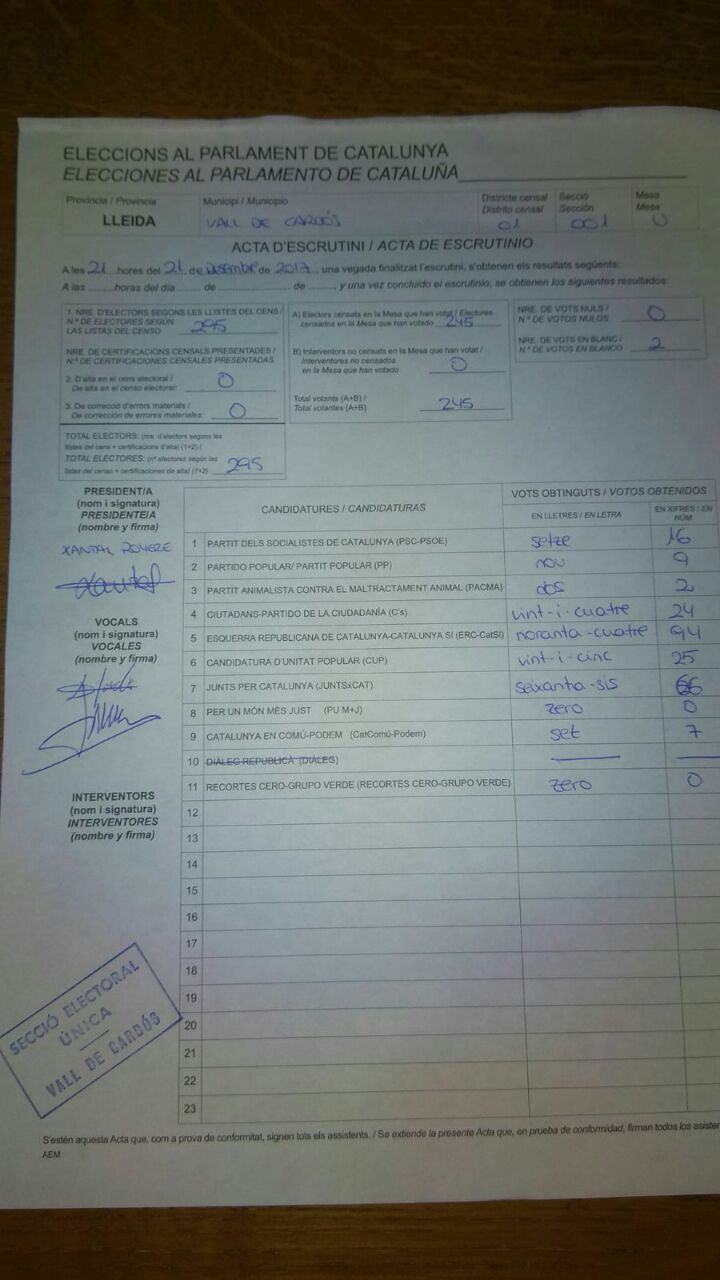 ELECCIONS AL PARLAMENT DE CATALUNYA
ELECCIONES AL PARLAMENTO DE CATALUÑA
Província / Provincia
LLEIDA
Municipi / Municipio
VALL DE CARDÓS
Districte censal
Distrito censal
01
Secció
Sección
001
Mesa
Mesa
U
ACTA D'ESCRUTINI / ACTA DE ESCRUTINIO
A les 21 hores del 21 de Desembre de 2017, una vegada finalitzat l'escrutini, s'obtenen els resultats següents:
A las ...... horas del día ...... de ...... de ......, y una vez concluido el escrutinio, se obtienen los siguientes resultados:
1. NRE. D'ELECTORS SEGONS LES LLISTES DEL CENS /
N.º DE ELECTORES SEGÚN
LAS LISTAS DEL CENSO 295
NRE. DE CERTIFICACIONS CENSALS PRESENTADES /
N.º DE CERTIFICACIONES CENSALES PRESENTADAS
2. D'alta en el cens electoral /
De alta en el censo electoral: 0
3. De correcció d'errors materials /
De corrección de errores materiales: 0
TOTAL ELECTORS: (nre. d'electors segons les
llistes del cens + certificacions d'alta) (1+2) /
TOTAL ELECTORES: (nº electores según las
listas del censo + certificaciones de alta) (1+2) 295
A) Electors censats en la Mesa que han votat / Electores
censados en la Mesa que han votado 245
B) Interventors no censats en la Mesa que han votat /
Interventores no censados
en la Mesa que han votado 0
Total votants (A+B) /
Total votantes (A+B) 245
NRE. DE VOTS NULS /
N.º DE VOTOS NULOS 0
NRE. DE VOTS EN BLANC /
N.º DE VOTOS EN BLANCO 2
PRESIDENT/A
(nom i signatura)
PRESIDENTE/A
(nombre y firma)
XANTAL
Xantal
VOCALS
(nom i signatura)
VOCALES
(nombre y firma)
INTERVENTORS
(nom i signatura)
INTERVENTORES
(nombre y firma)
CANDIDATURES / CANDIDATURAS
VOTS OBTINGUTS / VOTOS OBTENIDOS
EN LLETRES / EN LETRA
EN XIFRES / EN
NÚM.
1 PARTIT DELS SOCIALISTES DE CATALUNYA (PSC-PSOE) setze 16
2 PARTIDO POPULAR/ PARTIT POPULAR (PP) nou 9
3 PARTIT ANIMALISTA CONTRA EL MALTRACTAMENT ANIMAL (PACMA) dos 2
4 CIUTADANS-PARTIDO DE LA CIUDADANÍA (C's) vint-i-cuatre 24
5 ESQUERRA REPUBLICANA DE CATALUNYA-CATALUNYA SÍ (ERC-CatSí) noranta-cuatre 94
6 CANDIDATURA D'UNITAT POPULAR (CUP) vint-i-cinc 25
7 JUNTS PER CATALUNYA (JUNTSxCAT) seixanta-sis 66
8 PER UN MÓN MÉS JUST (PU M+J) zero 0
9 CATALUNYA EN COMÚ-PODEM (CatComú-Podem) set 7
10 DIÀLEG REPUBLICÀ (DIÀLEG)
11 RECORTES CERO-GRUPO VERDE (RECORTES CERO-GRUPO VERDE) zero 0
12
13
14
15
16
17
18
19
20
21
22
23
SECCIÓ ELECTORAL
ÚNICA
VALL DE CARDÓS
S'estén aquesta Acta que, com a prova de conformitat, signen tots els assistents. / Se extiende la presente Acta que, en prueba de conformidad, firman todos los
AEM